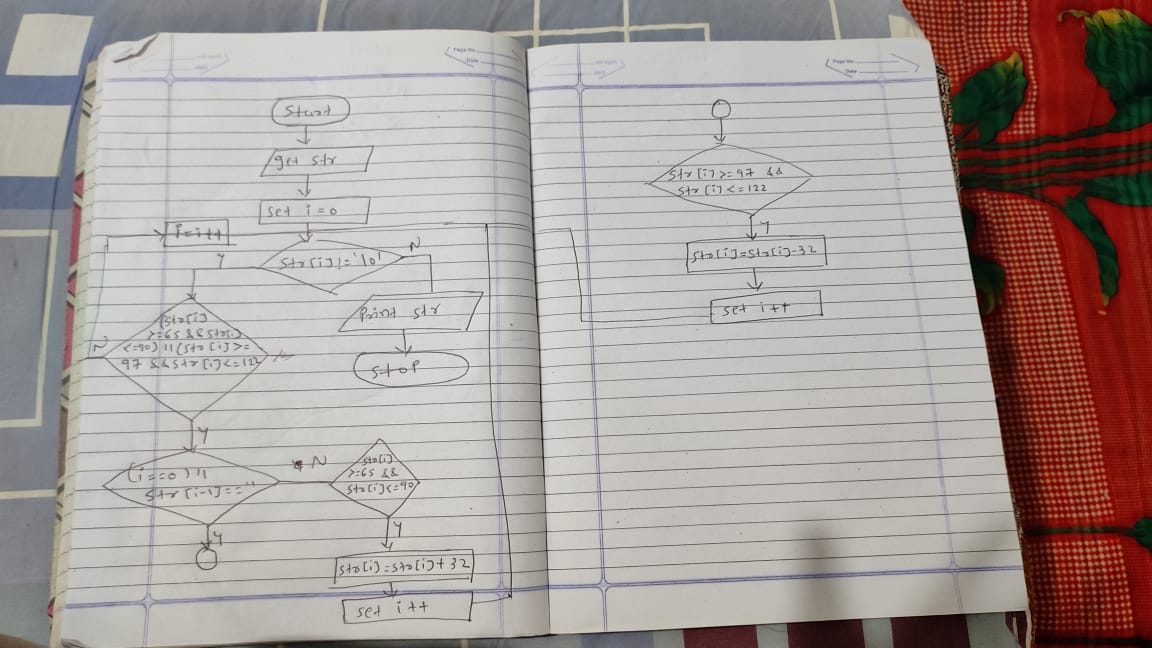 Page No.
Date
Start
get str
set i=0
i=i++
str[i]!='\0'
N
Y
Print str
Stop
(str[i]
>=65 && str[i]
<=90) || (str[i]>=
97 && str[i]<=122
N
Y
(i==0) ||
str[i-1]==''
N
str[i]
>=65 &&
str[i]<=90
Y
Y
str[i]=str[i]+32
set i++
Page No.
Date
str[i]>=97 &&
str[i]<=122
Y
str[i]=str[i]-32
set i++